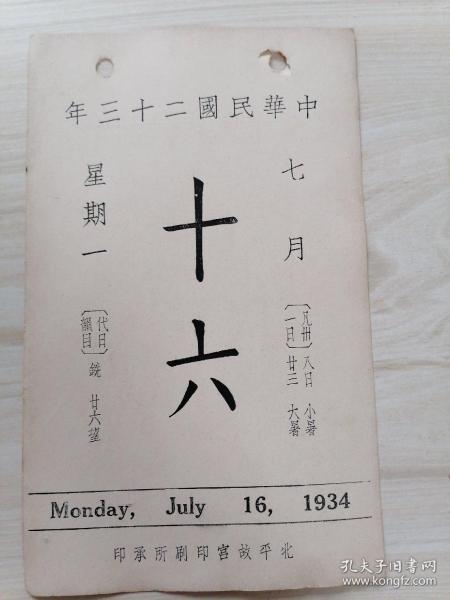 中華民國二十三年
七月
十六
星期一
〔凡卅一日〕
八日 小暑
廿三 大暑
〔代日韻目〕 銑 廿六望
Monday, July 16, 1934
北平故宮印刷所承印
孔夫子旧书网
www.kongfz.com